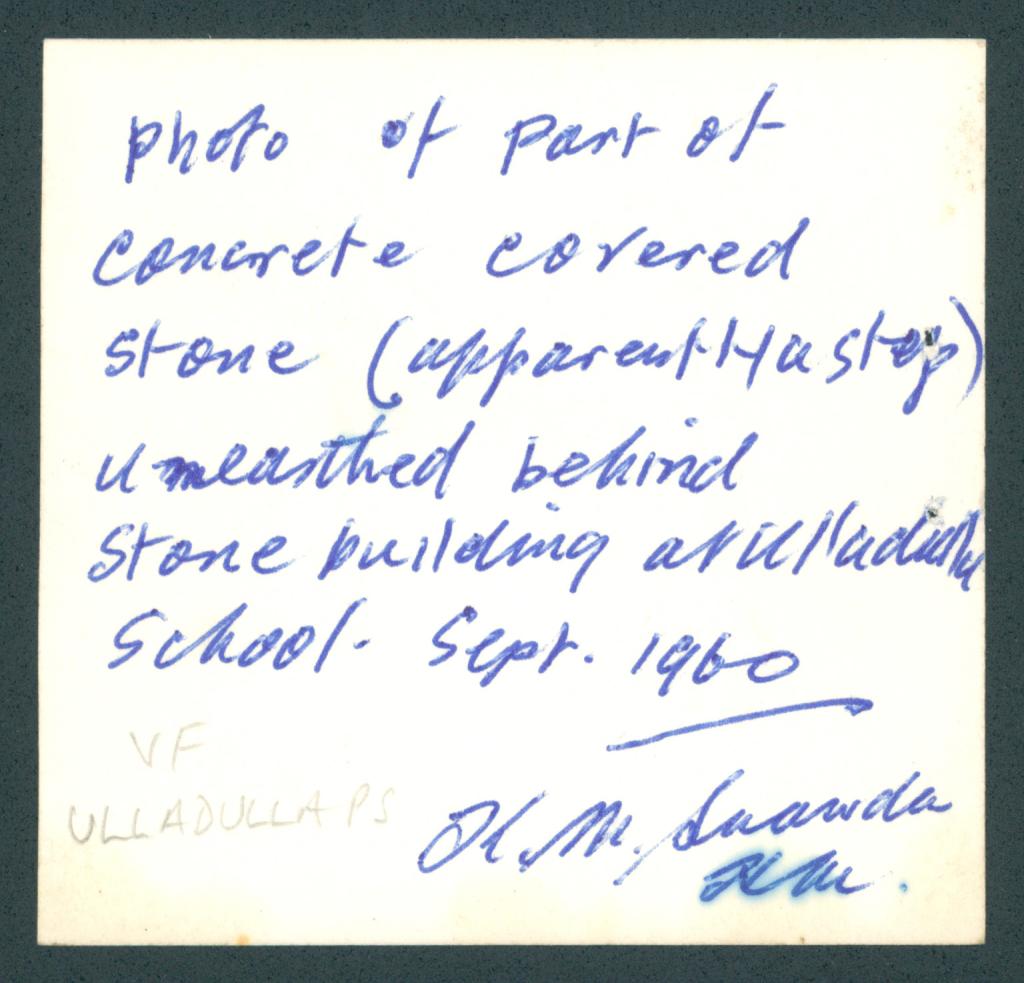 photo of part of
concrete covered
stone (apparently a step)
unearthed behind
stone building at Ulladulla
School. Sept. 1960
VF
ULLADULLA PS
K. M.
HM.